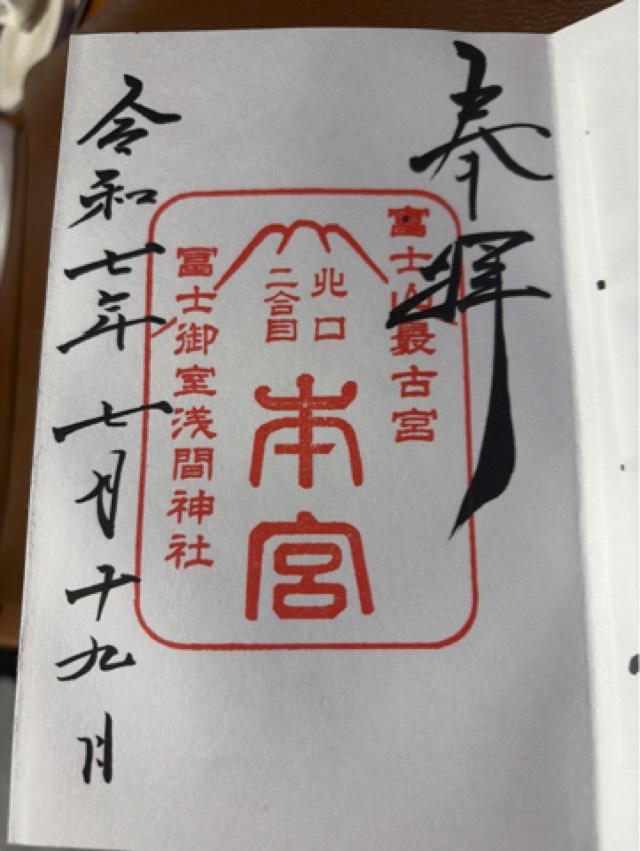 奉拝
富士山最古宮
北口
二合目
本宮
冨士御室浅間神社
令和七年七月十九日